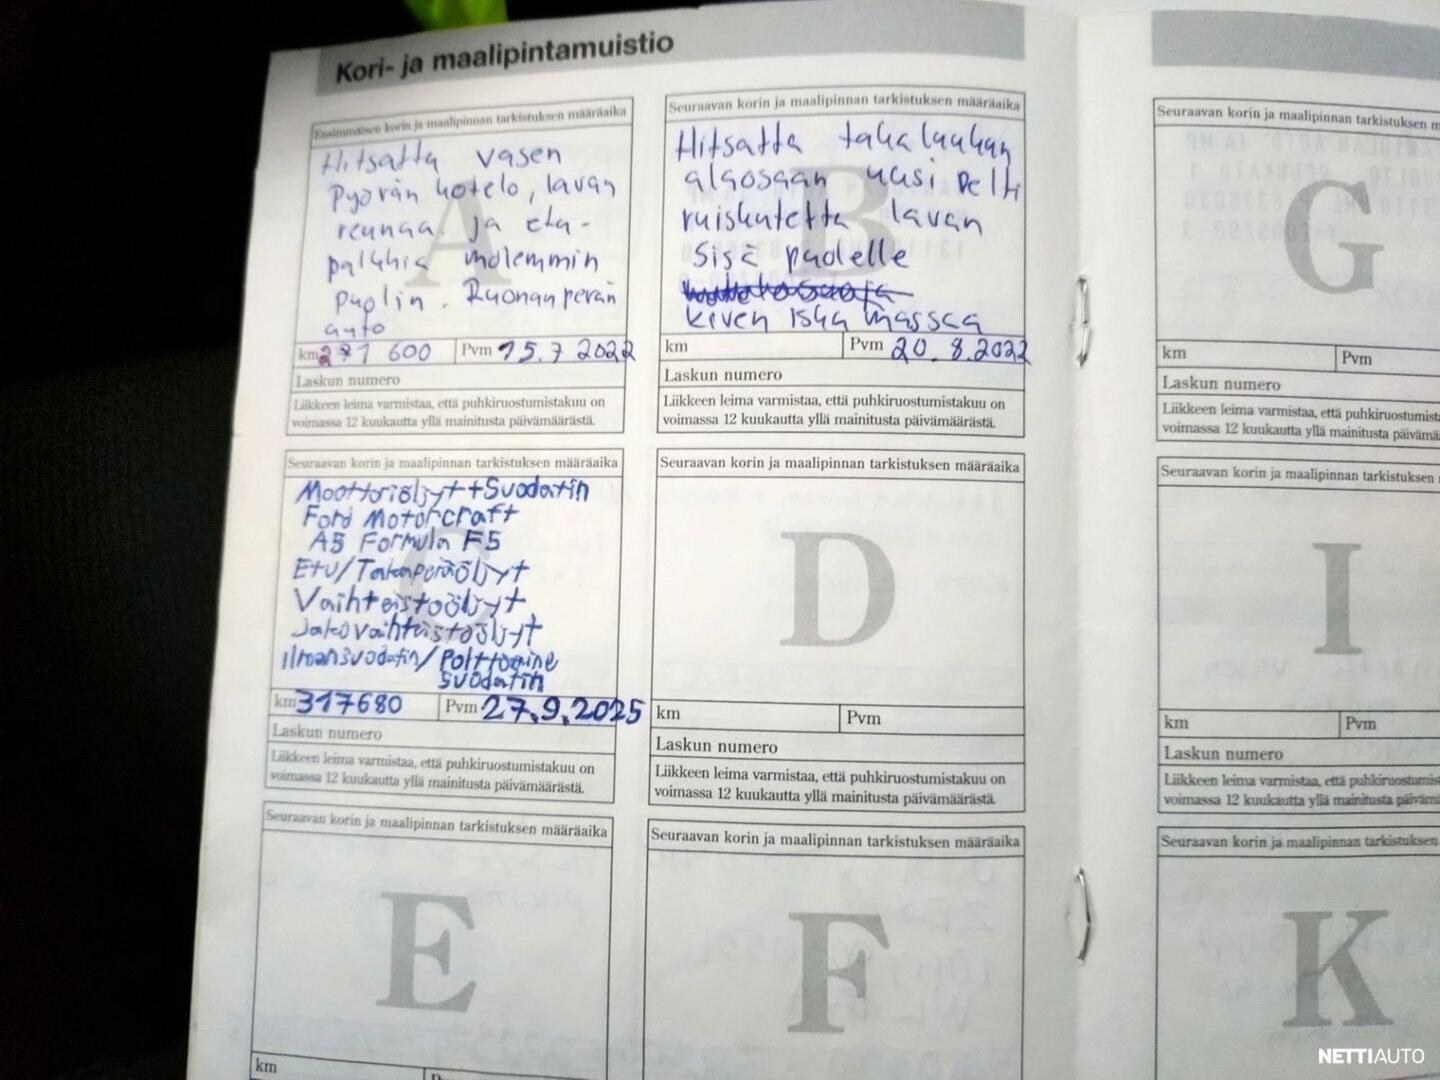 Kori- ja maalipintamuistio
Ensimmäisen korin ja maalipinnan tarkistuksen määräaika
Hitsattu vasen
Pyörän kotelo, lavan
reunaa ja etu-
palkkia molemmin
puolin. Ruonanperän
auto
km 271 600 Pvm 15.7 2022
Laskun numero
Liikkeen leima varmistaa, että puhkiruostumistakuu on
voimassa 12 kuukautta yllä mainitusta päivämäärästä.
Seuraavan korin ja maalipinnan tarkistuksen määräaika
Hitsattu takaluukun
alaosaan uusi pelti
ruiskutettu lavan
Sisä puolelle
kiven isku massaa
km Pvm 20.8.2022
Laskun numero
Liikkeen leima varmistaa, että puhkiruostumistakuu on
voimassa 12 kuukautta yllä mainitusta päivämäärästä.
Seuraavan korin ja maalipinnan tarkistuksen määräaika
Moottoriöljyt+Suodatin
Ford Motorcraft
A5 Formula F5
Etu/Takaperäöljyt
Vaihteistoöljyt
Jakovaihteistoöljyt
ilmansuodatin/Polttoaine
suodatin
km 317680 Pvm 27.9.2025
Laskun numero
Liikkeen leima varmistaa, että puhkiruostumistakuu on
voimassa 12 kuukautta yllä mainitusta päivämäärästä.
Seuraavan korin ja maalipinnan tarkistuksen määräaika
D
km Pvm
Laskun numero
Liikkeen leima varmistaa, että puhkiruostumistakuu on
voimassa 12 kuukautta yllä mainitusta päivämäärästä.
Seuraavan korin ja maalipinnan tarkistuksen määräaika
E
km
Seuraavan korin ja maalipinnan tarkistuksen määräaika
F
Seuraavan korin ja maalipinnan tarkistuksen m
G
km Pvm
Laskun numero
Liikkeen leima varmistaa, että puhkiruostumista
voimassa 12 kuukautta yllä mainitusta päivämä
Seuraavan korin ja maalipinnan tarkistuksen
I
km Pvm
Laskun numero
Liikkeen leima varmistaa, että puhkiruostumis
voimassa 12 kuukautta yllä mainitusta päivämä
Seuraavan korin ja maalipinnan tarkistuksen
K
NETTIAUTO